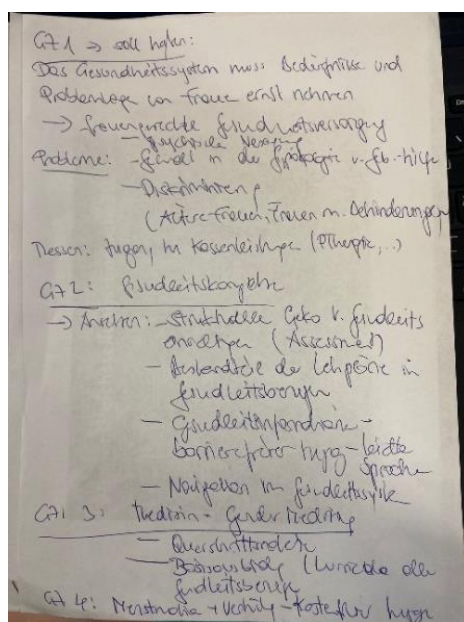 GA 1 → soll haben:
Das Gesundheitssystem muss Bedürfnisse und
Problemlage von Frauen ernst nehmen
→ frauengerechte Gesundheitsversorgung
Probleme: - Gewalt in der Gynäkologie u. Geb.-hilfe
- Diskriminierung
(Ältere Frauen, Frauen m. Behinderungen
Messen: zu Kassenleistungen (PTherapie, ..)
GA 2: Gesundheitskompetenz
→ - Strukturelle GeKo v. Gesundheits
(Assessment)
- Bestandteile der Lehrpläne in
Gesundheitsberufen
- Gesundheitsinformation -
barrierefreier Zugang - leichte
Sprache
- Navigation im Gesundheitssystem
GA 3: Medizin - Gender Medizin
- Querschnittmaterie
- (Curricula aller
Gesundheitsberufe
GA 4: Menstruation + Verhütung - Kostenfreier Zugang